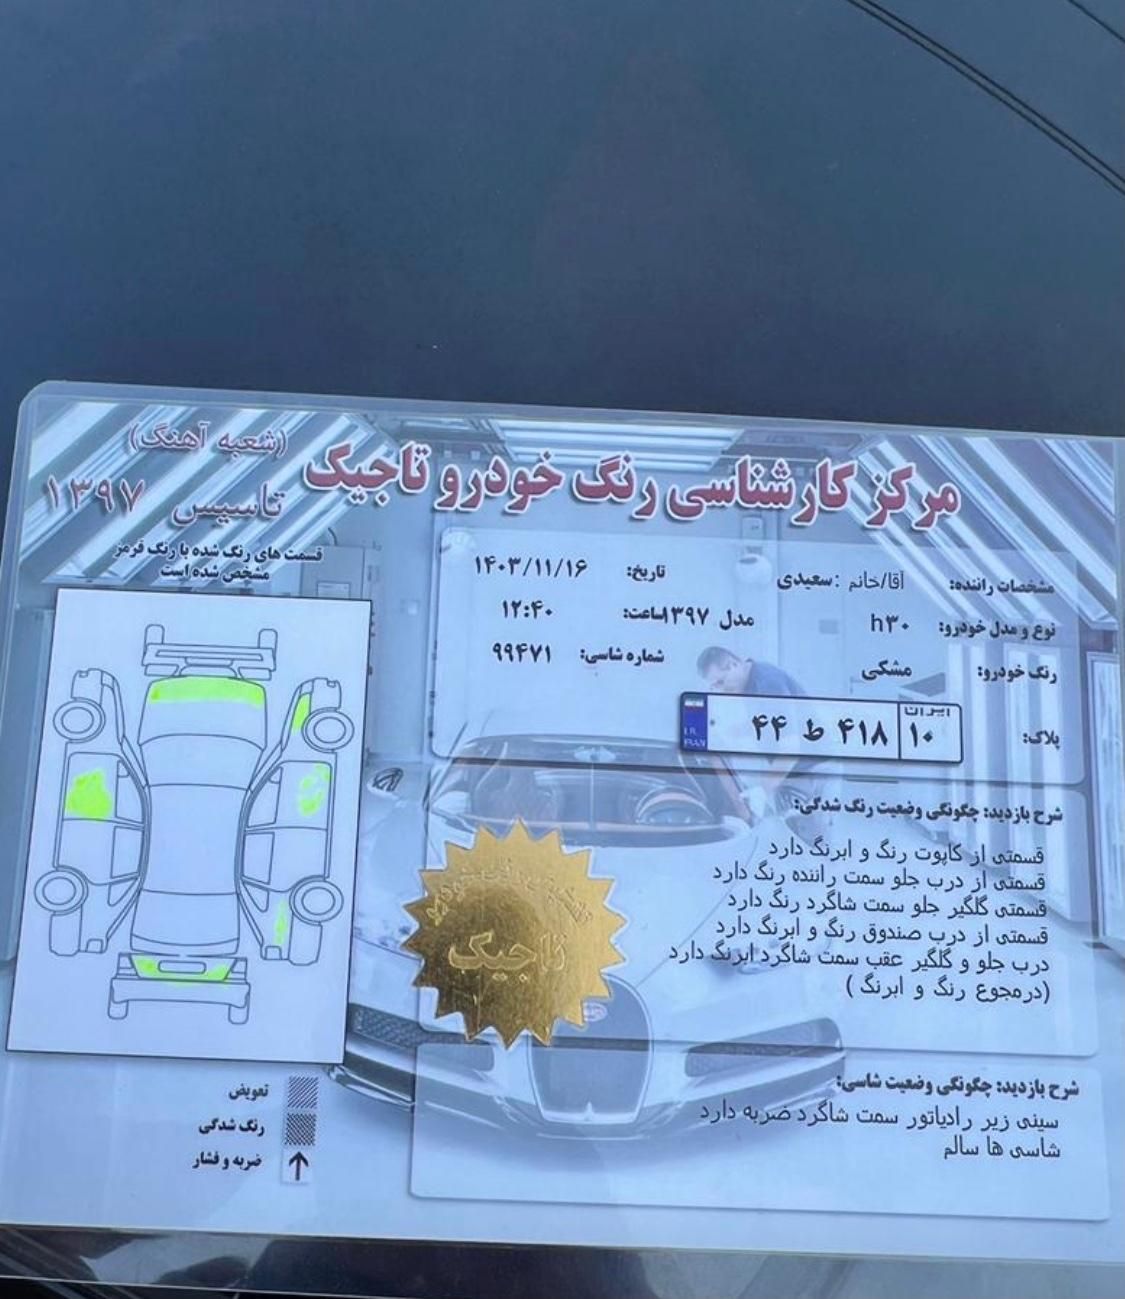 (شعبه آهنگ)
مرکز کارشناسی رنگ خودرو تاجیک
تاسیس ۱۳۹۷
قسمت های رنگ شده با رنگ قرمز
مشخص شده است
مشخصات راننده: آقا/خانم : سعیدی تاریخ: ۱۴۰۳/۱۱/۱۶
نوع و مدل خودرو: h۳۰ مدل ۱۳۹۷ ساعت: ۱۲:۴۰
رنگ خودرو: مشکی شماره شاسی: ۹۹۴۷۱
پلاک: ۴۴ ط ۴۱۸ ایران ۱۰
I.R.
IRAN
شرح بازدید: چگونگی وضعیت رنگ شدگی:
قسمتی از کاپوت رنگ و ابرنگ دارد
قسمتی از درب جلو سمت راننده رنگ دارد
قسمتی گلگیر جلو سمت شاگرد رنگ دارد
قسمتی از درب صندوق رنگ و ابرنگ دارد
درب جلو و گلگیر عقب سمت شاگرد ابرنگ دارد
(درمجوع رنگ و ابرنگ )
تاجیک
شرح بازدید: چگونگی وضعیت شاسی:
سینی زیر رادیاتور سمت شاگرد ضربه دارد
شاسی ها سالم
تعویض
رنگ شدگی
ضربه و فشار